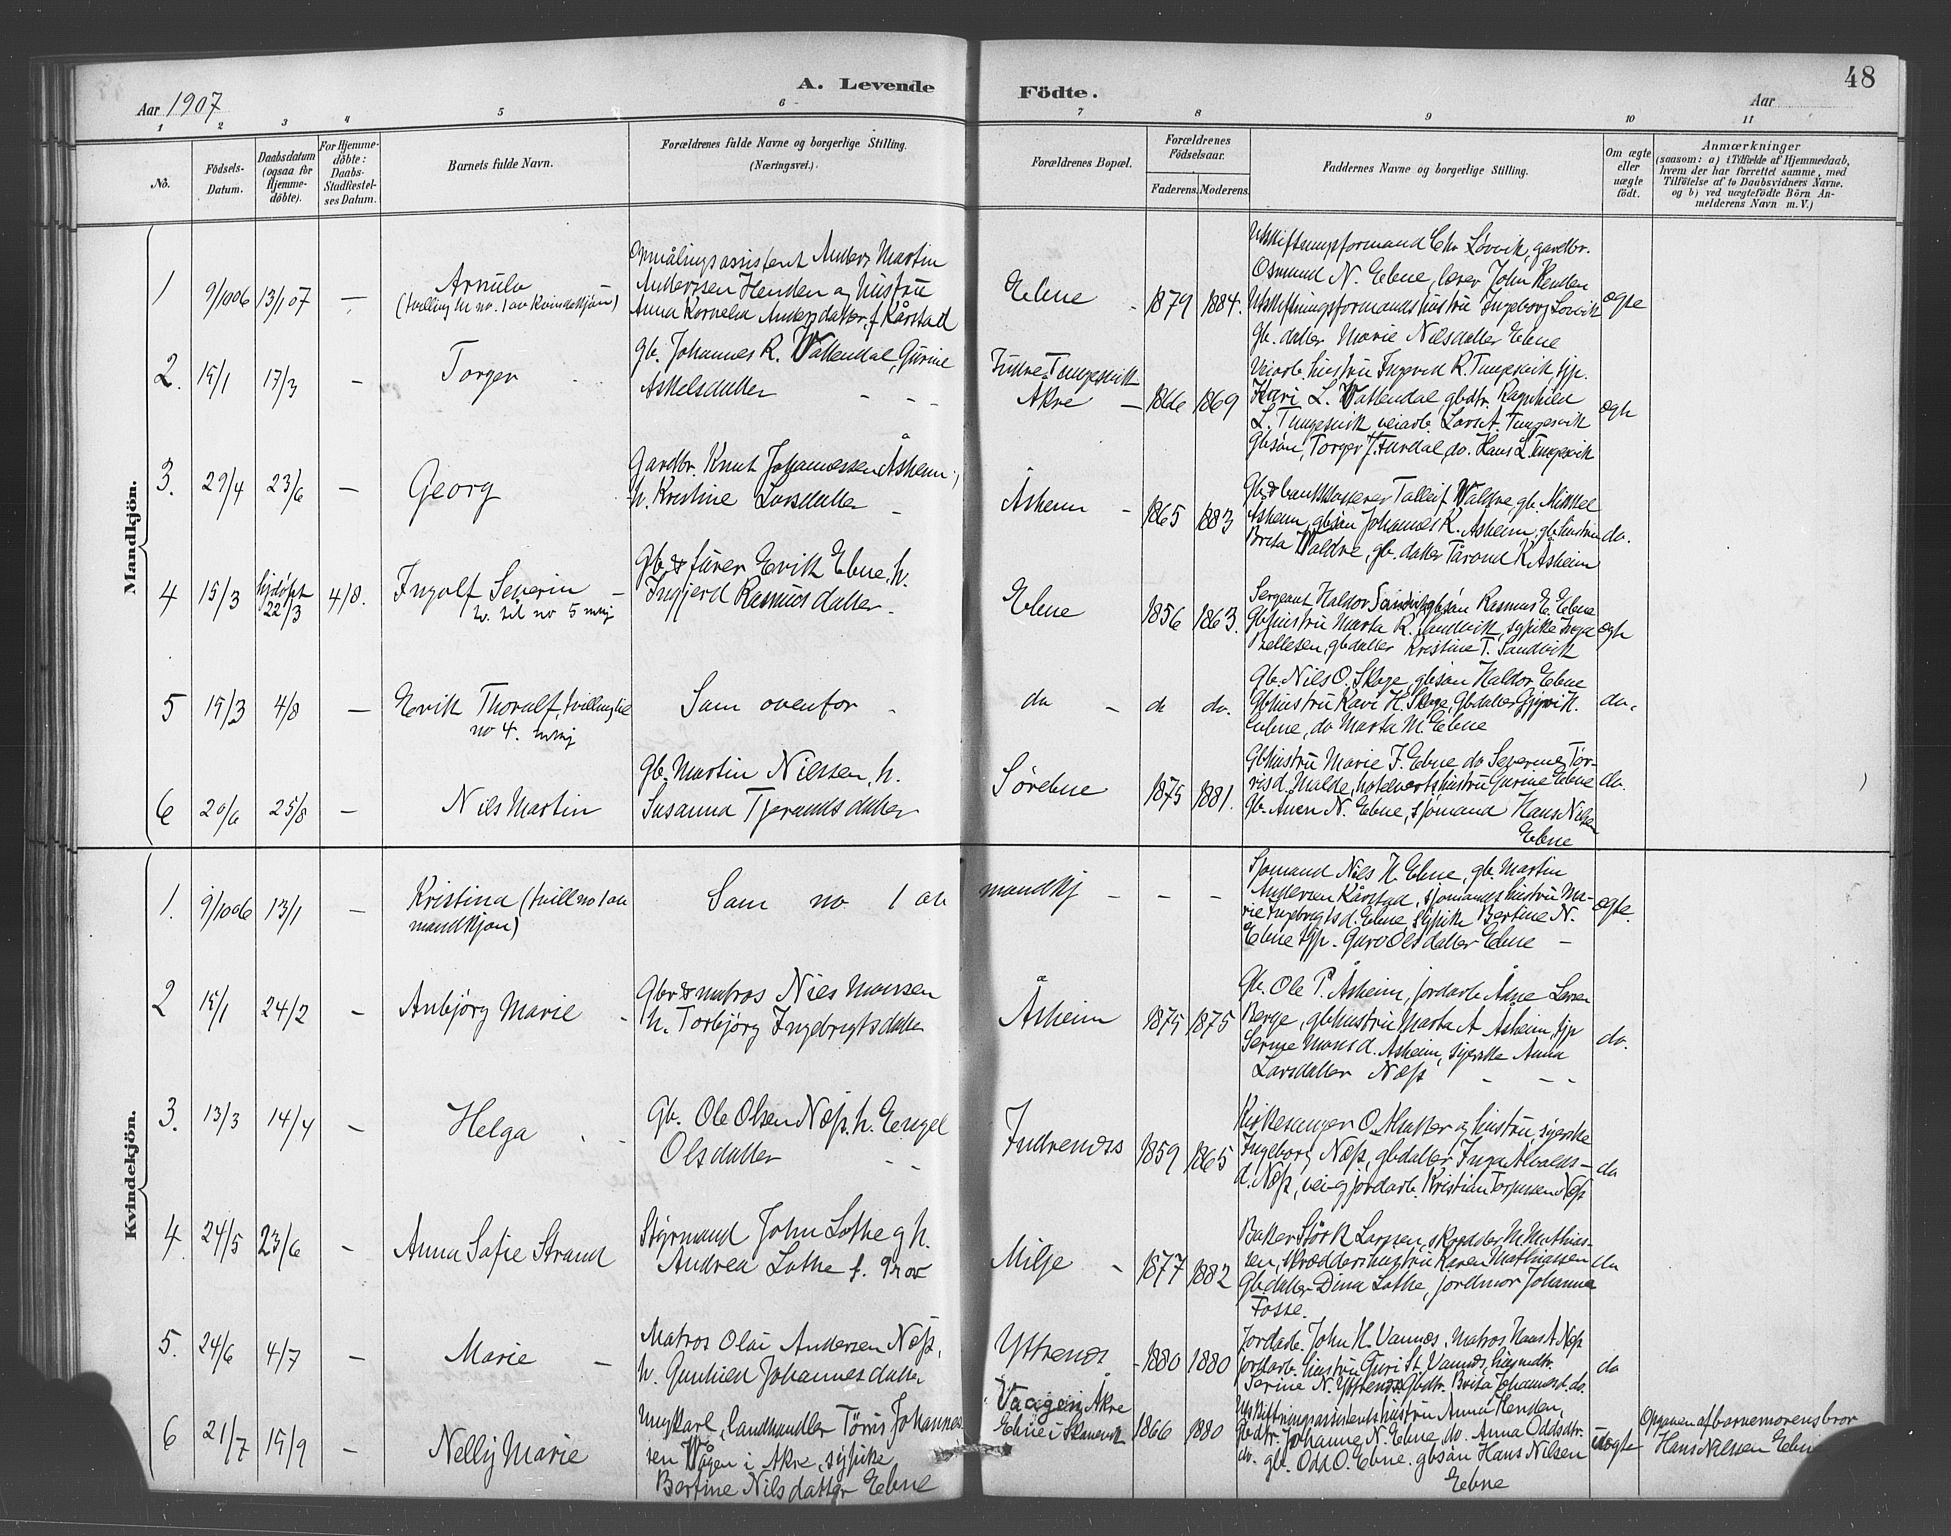 Aar 1907
A. Levende
Födte.
48
Aar
1 2 3 4 5 6 7 8 9 10 11
No.
Födsels-
Datum.
Daabsdatum
(ogsaa for
Hjemme-
döbte).
For Hjemme-
döbte:
Daabs-
Stadfæstel-
ses Datum.
Barnets fulde Navn.
Forældrenes fulde Navne og borgerlige Stilling.
(Næringsvei.)
Forældrenes Bopæl.
Forældrenes
Födselsaar.
Faderens. Moderens.
Faddernes Navne og borgerlige Stilling.
Om ægte
eller
uægte
födt.
Anmærkninger
(saasom: a) i Tilfælde af Hjemmedaab,
hvem der har forrettet samme, med
Tilföielse af to Daabsvidners Navne.
og b) ved uægtefödte Börn An-
melderens Navn m. V.)
Mandkjön.
1 9/10 06 13/1 07 —
Arnulv
(tvilling m no. 1 av kvindekjön)
Opmålingsassistent Anders Martin
Anderssen Henden og hustru
Anna Kornelia Andersdatter, f. Kårstad
Ebne - 1879 1884.
Utskiftningsformand Chr Løvik, gardbr.
Osmund N. Ebne, lærer John Henden
Utskiftningsformands hustru Ingeborg Løvik
Gb. datter Marie Nilsdatter Ebne
ægte
2. 15/1 17/3 -
Torger
Gb. Johannes R. Vattendal, Gurine
Askelsdatter
Indre Tungesvik
Åkre — 1866 1869
Veiarb. hustru Ingerid R. Tungesvik, tjp.
Kari L. Vattendal, gbdtr. Ragnhild
L. Tungesvik veiarb. Lars A. Tungesvik
Gbsön, Torger J. Furdal, do. Hans L. Tungesvik
ægte
3. 29/4 23/6 —
Georg
Gardbr. Knut Johannessen Åsheim,
h. Kristine Larsdatter
Åsheim - 1865 1883
Gb. & bankkasserer Talleif Valdre, gb. Mikkel
Åsheim, gbsön Johannes K. Åsheim, gbhustru
Brita Valdre, gb. datter Tårond K. Åsheim
do.
4 15/3 hjdöpt 22/3 4/8.
Ingolf Severin -
tv. til no 5
Gb. & furer Erik Ebne, h.
Ingjerd Rasmusdatter.
Ebne 1856 1863.
Sergeant Haldor Sandvik, gbsön Rasmus E. Ebne
Gbhustru Marta R. Sandvik, sypike Inga
Pellesen, gbdatter Kristine T. Sandvik
ægte
5 15/3 4/8 —
Erik Thoralf, tvilling til
no 4.
Sam ovenfor -
do - do do.
Gb. Nils O. Skoge, gbsön Haldor Ebne
Gbhustru Kari H. Skoge, Gbdatter H.
Ebne, do Marta M. Ebne
do.
6 20/6 25/8 —
Nils Martin
Gb. Martin Nilssen, h.
Susanna Tjerandsdatter
Sörebne 1875 1881.
Gbhustru Marie J. Ebne do Severine Tör-
risd. Malde, hotelvertshustru Gurine Ebne
Gb. Amen N. Ebne, sjömand Hans Nilsen
Ebne
do.
Kvindekjön.
1. 9/10 06 13/1 -
Kristina (tvill no 1 av
mandkjön)
Sam no 1 av mandkj - - -
Sjömand Nils H. Ebne, gb. Martin
Anderssen Kårstad, sjömands hustru Ma-
rie Ingebrigtsd. Ebne, sypike Bertine N.
Ebne tjp. Guro Olsdatter Ebne —
ægte.
2 15/1 24/2 -
Anbjörg Marie
Gbr & matros Nils Monsen
h. Torbjörg Ingebrigtsdatter
Åsheim 1875 1875
Gb. Ole P. Åsheim, jordarb. Åsne Larsen
Berge, gbhustru Marta A Åsheim, tjp
Serine Monsd. Åsheim, syerske Anna
Larsdatter Næss
do.
3. 13/3 14/4 -
Helga
Gb. Ole Olsen Næss. h. Engel
Olsdatter
Indrenæs 1859 1865
Kirkesanger O. Mutter og hustru, syerske
Ingeborg Næss, gbdatter Inga Alvalds-
d. Næss, vei- og jordarb. Kristian Torgersen Næss
do
4. 24/5 23/6 -
Anna Sofie Strand
Styrmand John Lothe og h.
Andrea Lothe f. Prov
Milje - 1877 1882
Baker Störk Larssen, skrædder M. Mathias-
sen, skrædderhustru Karen Mathiassen
Gbdatter Dina Lothe, jordmor Johanna
Fosse.
do
5. 24/6 4/7 —
Marie —
Matros Olai Andersen Næss,
h. Gunhild Johannesdatter
Yttrenæs - 1880 1880
Jordarb. John H. Vannes, Matros Hans A Næss
jordarb. hustru Guri St. Vannes,
Serine N. Yttrenæs Gbdtr. Brita Johannesd. do.
do
6 21/7 15/9 —
Nelly Marie
Ungkarl, landhandler Törris Johannes-
sen Vågen i Åkre, sypike
Bertine Nilsdatter Ebne
Vaagen i Åkre
Ebne i Skånevik 1866 1880
Utskiftningsassistents hustru Anna Henden,
Gbdtr. Johanne N. Ebne, do. Anna Oddsdtr.
do. gb. Odd O. Ebne. gbsön Hans Nilsen
Ebne
Uægte
Opgaven af barnemorens bror
Hans Nilssen Ebne